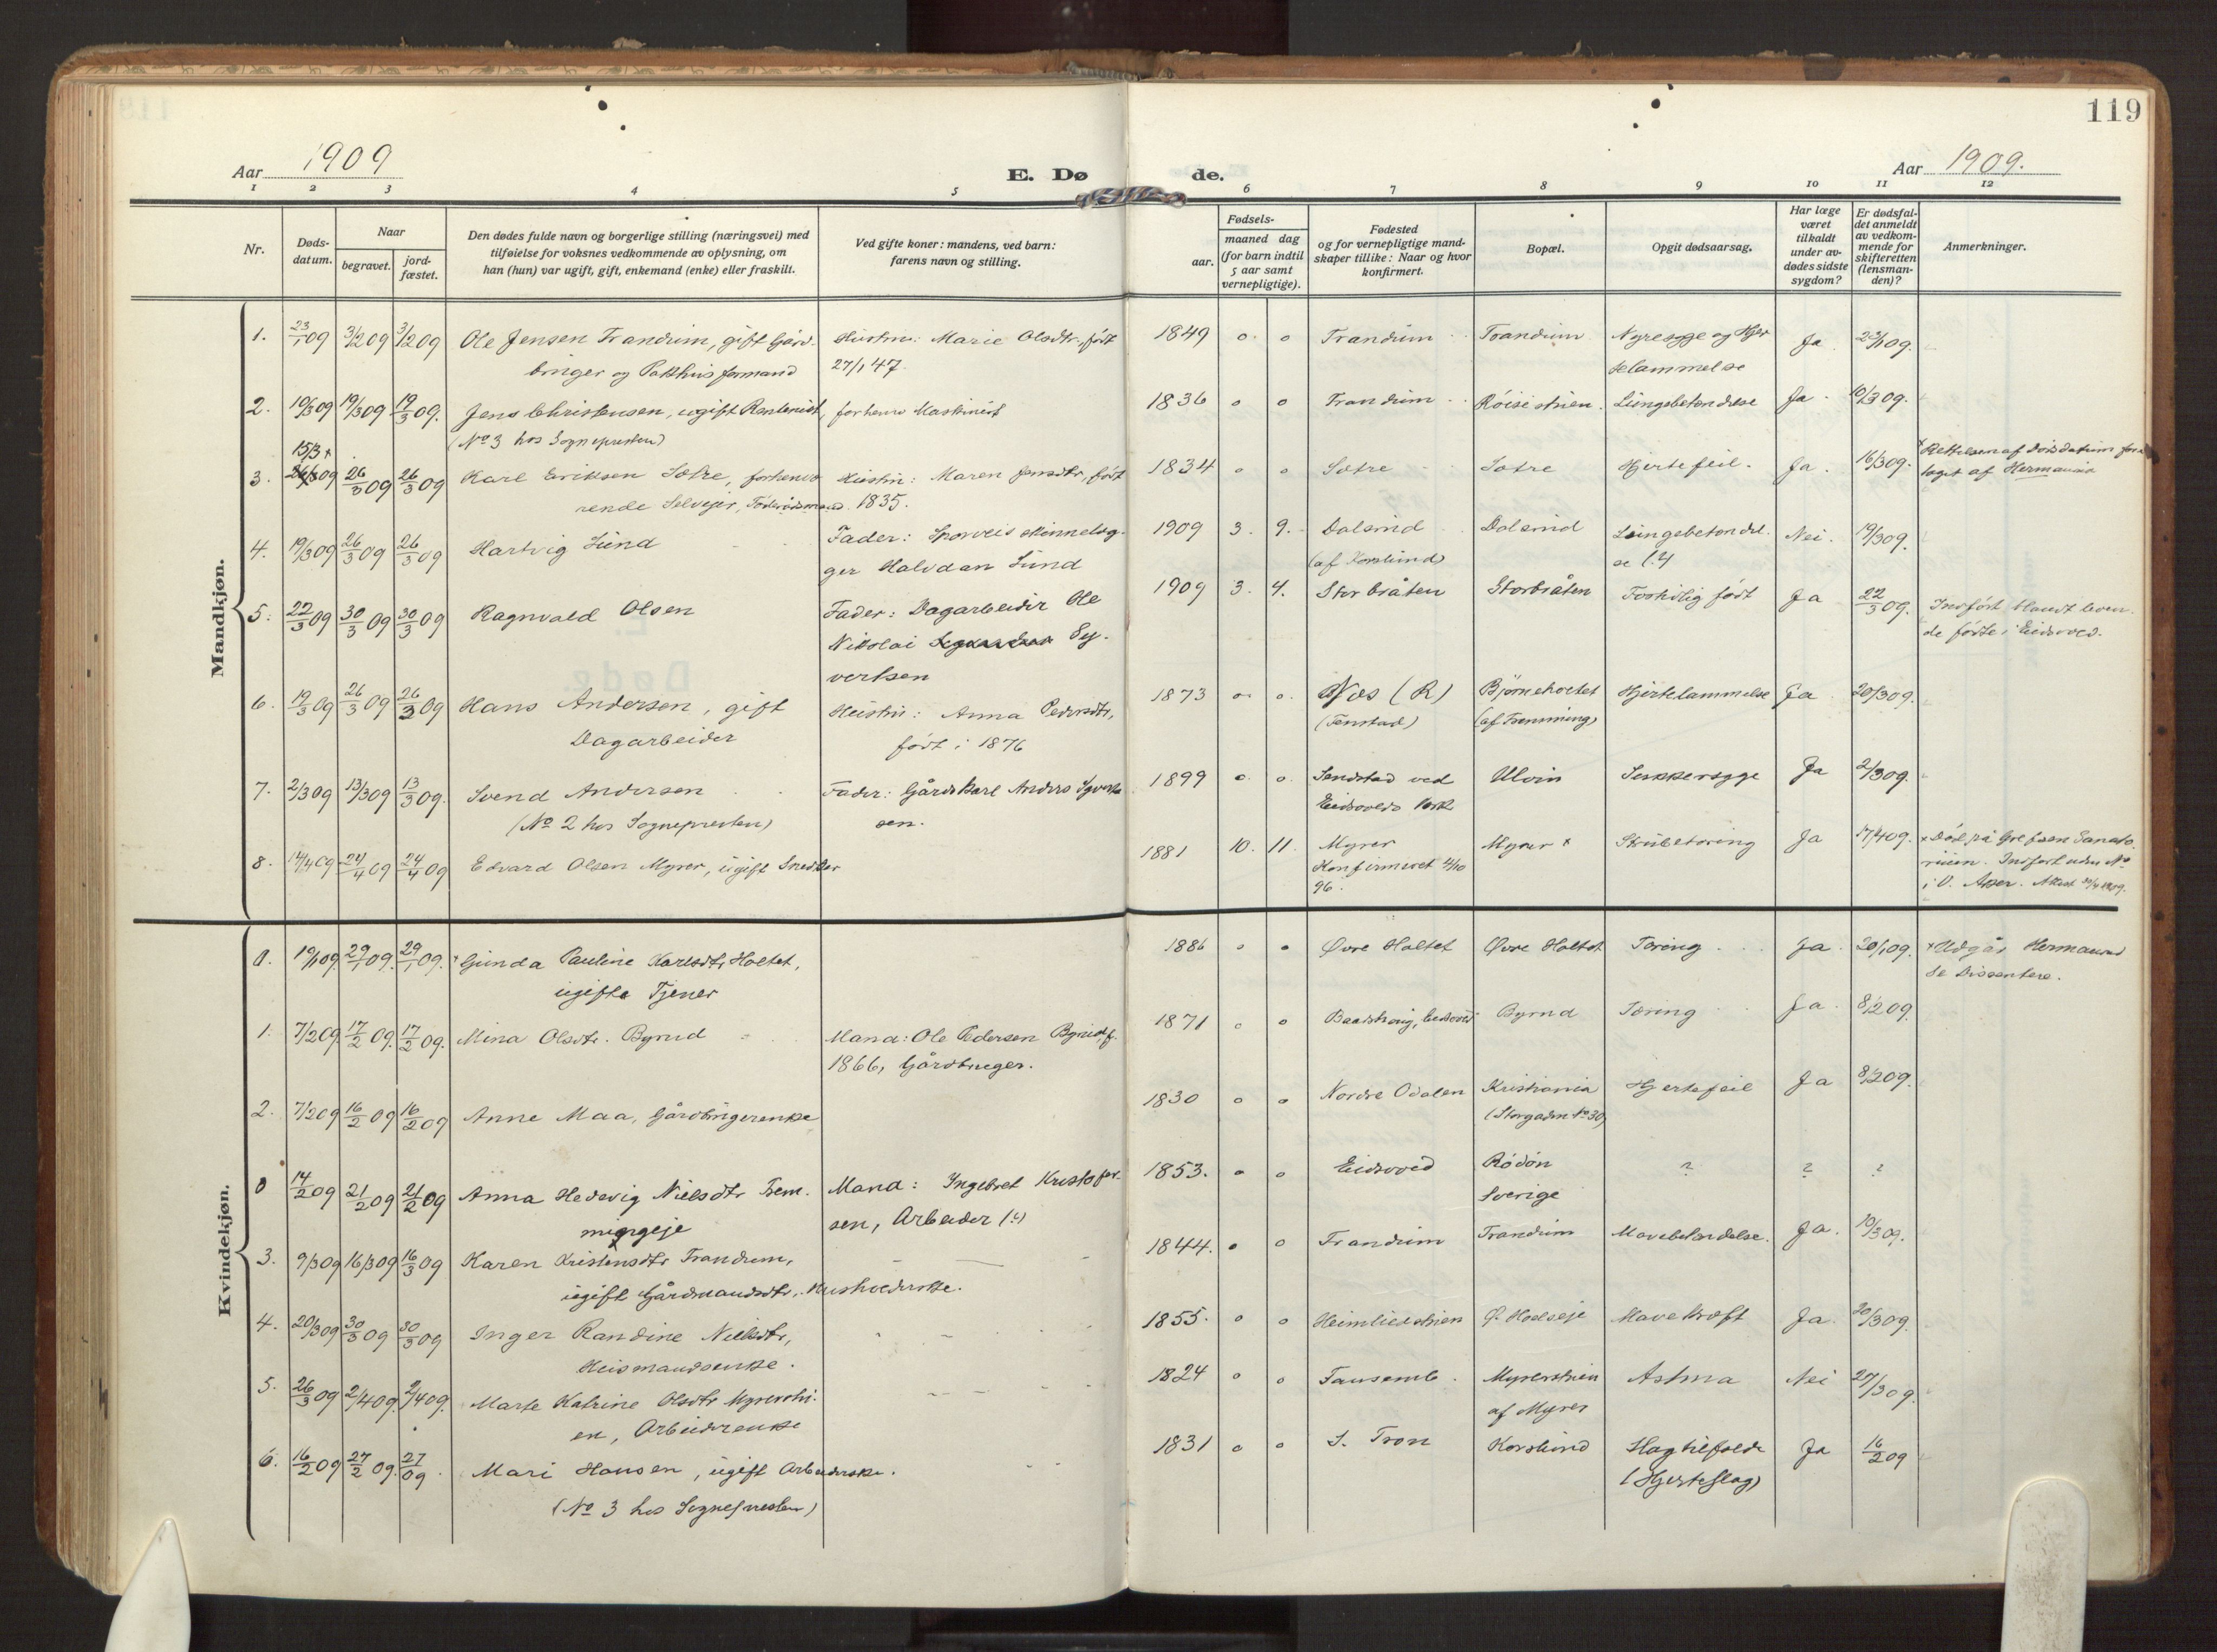 119
Aar 1909
E. Dø
de.
Aar 1909.
1 2 3 4 5 6 7 8 9 10 11 12
Nr.
Døds-
datum.
Naar
begravet.
jord-
fæstet.
Den dødes fulde navn og borgerlige stilling (næringsvei) med
tilføielse for voksnes vedkommende av oplysning, om
han (hun) var ugift, gift, enkemand (enke) eller fraskilt.
Ved gifte koner: mandens, ved barn:
farens navn og stilling.
Fødsels-
aar.
maaned dag
(for barn indtil
5 aar samt
vernepligtige).
Fødested
og for vernepligtige mand-
skaper tillike: Naar og hvor
konfirmert.
Bopæl.
Opgit dødsaarsag.
Har læge
været
tilkaldt
under av-
dødes sidste
sygdom?
Er dødsfal-
det anmeldt
av vedkom-
mende for
skifteretten
(lensman-
den)?
Anmerkninger.
Mandkjøn.
1. 23/1 09 3/2 09 3/2 09 Ole Jensen Trandum, gift Gård- Hustru: Marie Olsdtr, født 1849 0 0 Trandum Trandum Nyresyge og Hjer Ja 23/1 09.
bruger og Pakhusformand 27/1 47. telammelse
2. 10/3 09 19/3 09 19/3 09. Jens Christensen, ugift Rentenist, forhenv Maskinist 1836 0 0 Trandum Röisestuen. Lungebetændelse Ja 10/3 09.
(No 3 hos Sognepresten)
15/3 x
3. 26/3 09 26/3 09 Karl Eriksen Sætre, forhenvæ Hustru: Maren Jensdtr, født 1834 0 0 Sætre Sætre Hjertefeil. Ja. 16/3 09. x Rettelsen af dødsdatum fore
rende Selveier, Föderådsmand. 1835. taget af Hermanrud
4. 19/3 09 26/3 09 26/3 09 Hartvig Lund Fader: Sporveisskinnelæg- 1909 3. 9. Dalsrud Dalsrud Lungebetændel. Nei. 19/3 09.
ger Halvdan Lund (af Korslund) se (?)
5. 22/3 09 30/3 09 30/3 09 Ragnvald Olsen Fader: Dagarbeider Ole 1909 3. 4. Storbråten Storbråten Fortidlig født Ja 22/3 09. Indført blandt leven-
Nikolai Sy- de fødte i Eidsvold.
vertsen
6. 19/3 09 26/3 09 26/3 09 Hans Andersen, gift Hustru: Anna Pedersdtr, 1873 0 0. Næs (R) Bjørneholtet Hjertelammelse Ja 20/3 09.
Dagarbeider født i 1876 (Fenstad) (af Tremming)
7. 2/3 09 13/3 09 13/3 09. Svend Andersen Fader: Gårdskarl Anders Syvert 1899 0. 0. Sandstad ved Ulvin Sukkersyge Ja 2/3 09.
(No 2 hos Sognepresten) sen. Eidsvolds Verk
8. 14/4 09 24/4 09 24/4 09 Edvard Olsen Myrer, ugift Snedker 1881 10. 11. Myrer Myrer x Strubetæring Ja 17/4 09. x Död på Grefsen Sanato
Konfirmeret 4/10 rium. Indført uden No
96. i V. Aker.
Kvindekjøn.
0. 19/1 09 29/1 09. 29/1 09. x Gunda Pauline Karlsdtr Holtet, 1886 0 0 Øvre Holtet Øvre Holtet Tæring Ja 20/1 09. x Udgår Hermanrud
ugift Tjener Se Dissentere.
1. 7/2 09 17/2 09. 17/2 09. Mina Olsdtr. Byrud Mand: Ole Pedersen Byrud, f. 1871 0 0 Eidsvold Byrud Tæring Ja 8/2 09.
1866, Gårdbruger.
2. 7/2 09 16/2 09 16/2 09 Anne Maa, Gårdbrugerenke 1830 0 0 Nordre Odalen Kristiania Hjertefeil Ja 8/2 09.
(Storgaden No 30)
0 14/2 09 21/2 09 21/2 09 Anna Hedevig Nielsdtr Trem- Mand: Ingebret Kristofer- 1853. 0 0 Eidsvold Rödön ? ? ?
mingeje sen, Arbeider (?) Sverige
3. 9/3 09 16/3 09 16/3 09 Karen Kristensdtr Trandum, 1844. 0 0 Trandum Trandum Mavebetændelse. Ja. 10/3 09.
ugift Gårdmandsdtr, Husholderske.
4. 20/3 09 30/3 09 30/3 09 Inger Randine Nielsdtr, 1855. 0 0 Ø. Holseje Mavekræft Ja. 20/3 09.
Husmandsenke.
5. 26/3 09 2/4 09. 2/4 09. Marte Katrine Olsdtr Myrerstu- 1824 0 0 Myrerstuen Astma Nei 27/3 09.
en, Arbeiderenke af Myrer
6. 16/2 09 27/2 09. 27/ 09. Mari Hansen, ugift Arbeiderske. 1831 0 0 S. Tron Korslund Slagtilfælde Ja 16/2 09
(No 3 hos Sognepresten) (Hjerteslag)